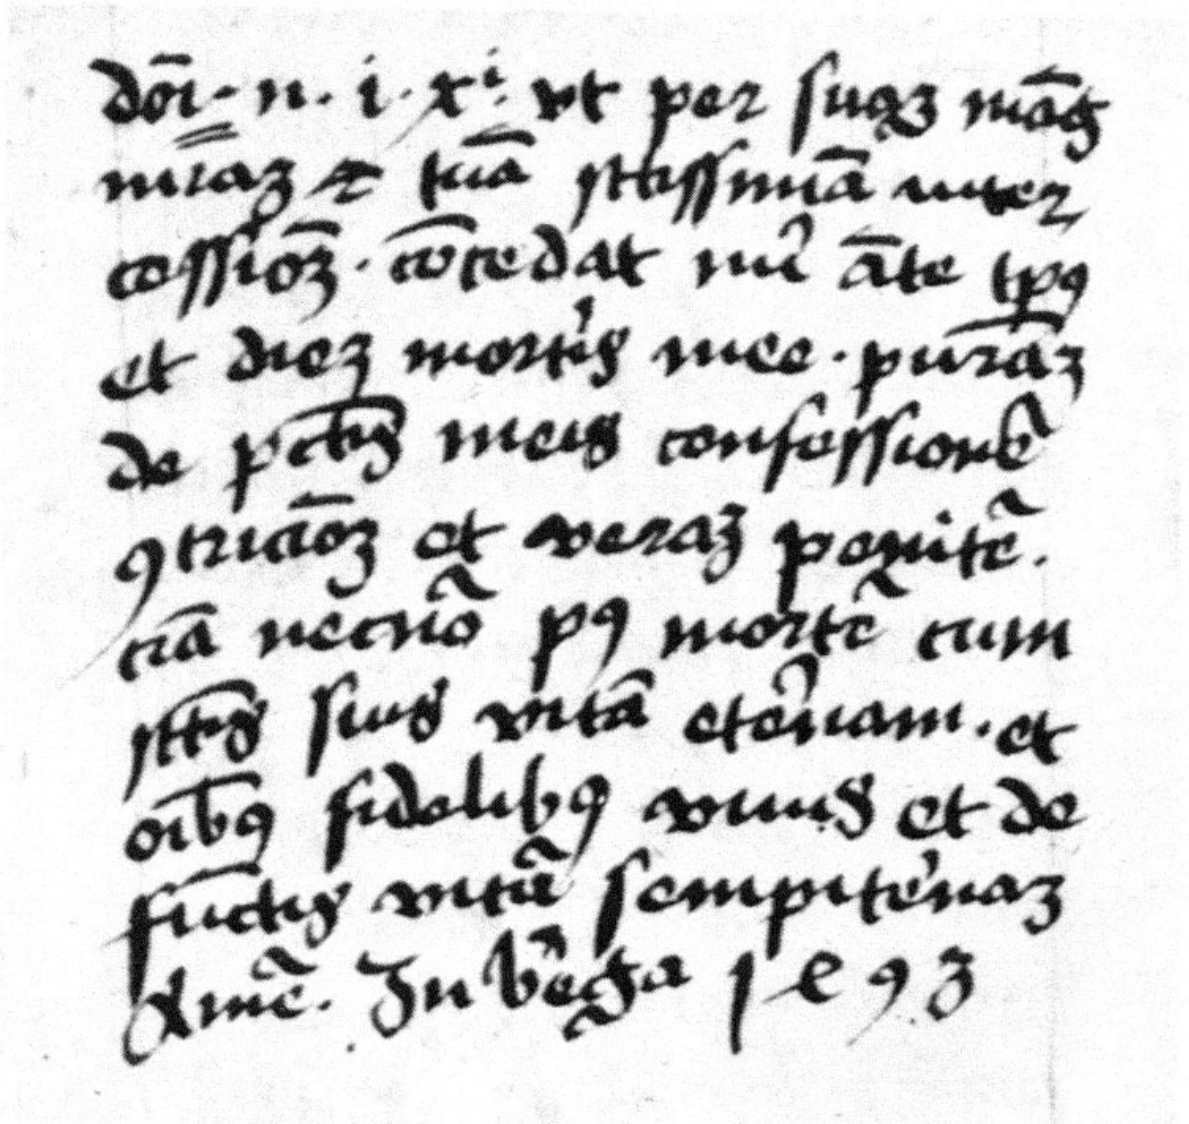 dōi · n · i · xⁱ · vt per suaꝫ māg
miaꝫ ⁊ tuā sctissimā inter
cessioꝫ · cōcedat mi āte tp̄ꝰ
et dieꝫ mortis mee · purāꝫ
de pctīs meis confessionē
ꝯtricioꝫ et veraꝫ penitē ·
ciā necnō pꝰ mortē cum
sctīs suis vitā eternam · et
oībꝰ fidelibꝰ viuis et de
functis vitā sempiternaꝫ
Amē · In b̄ega 1493